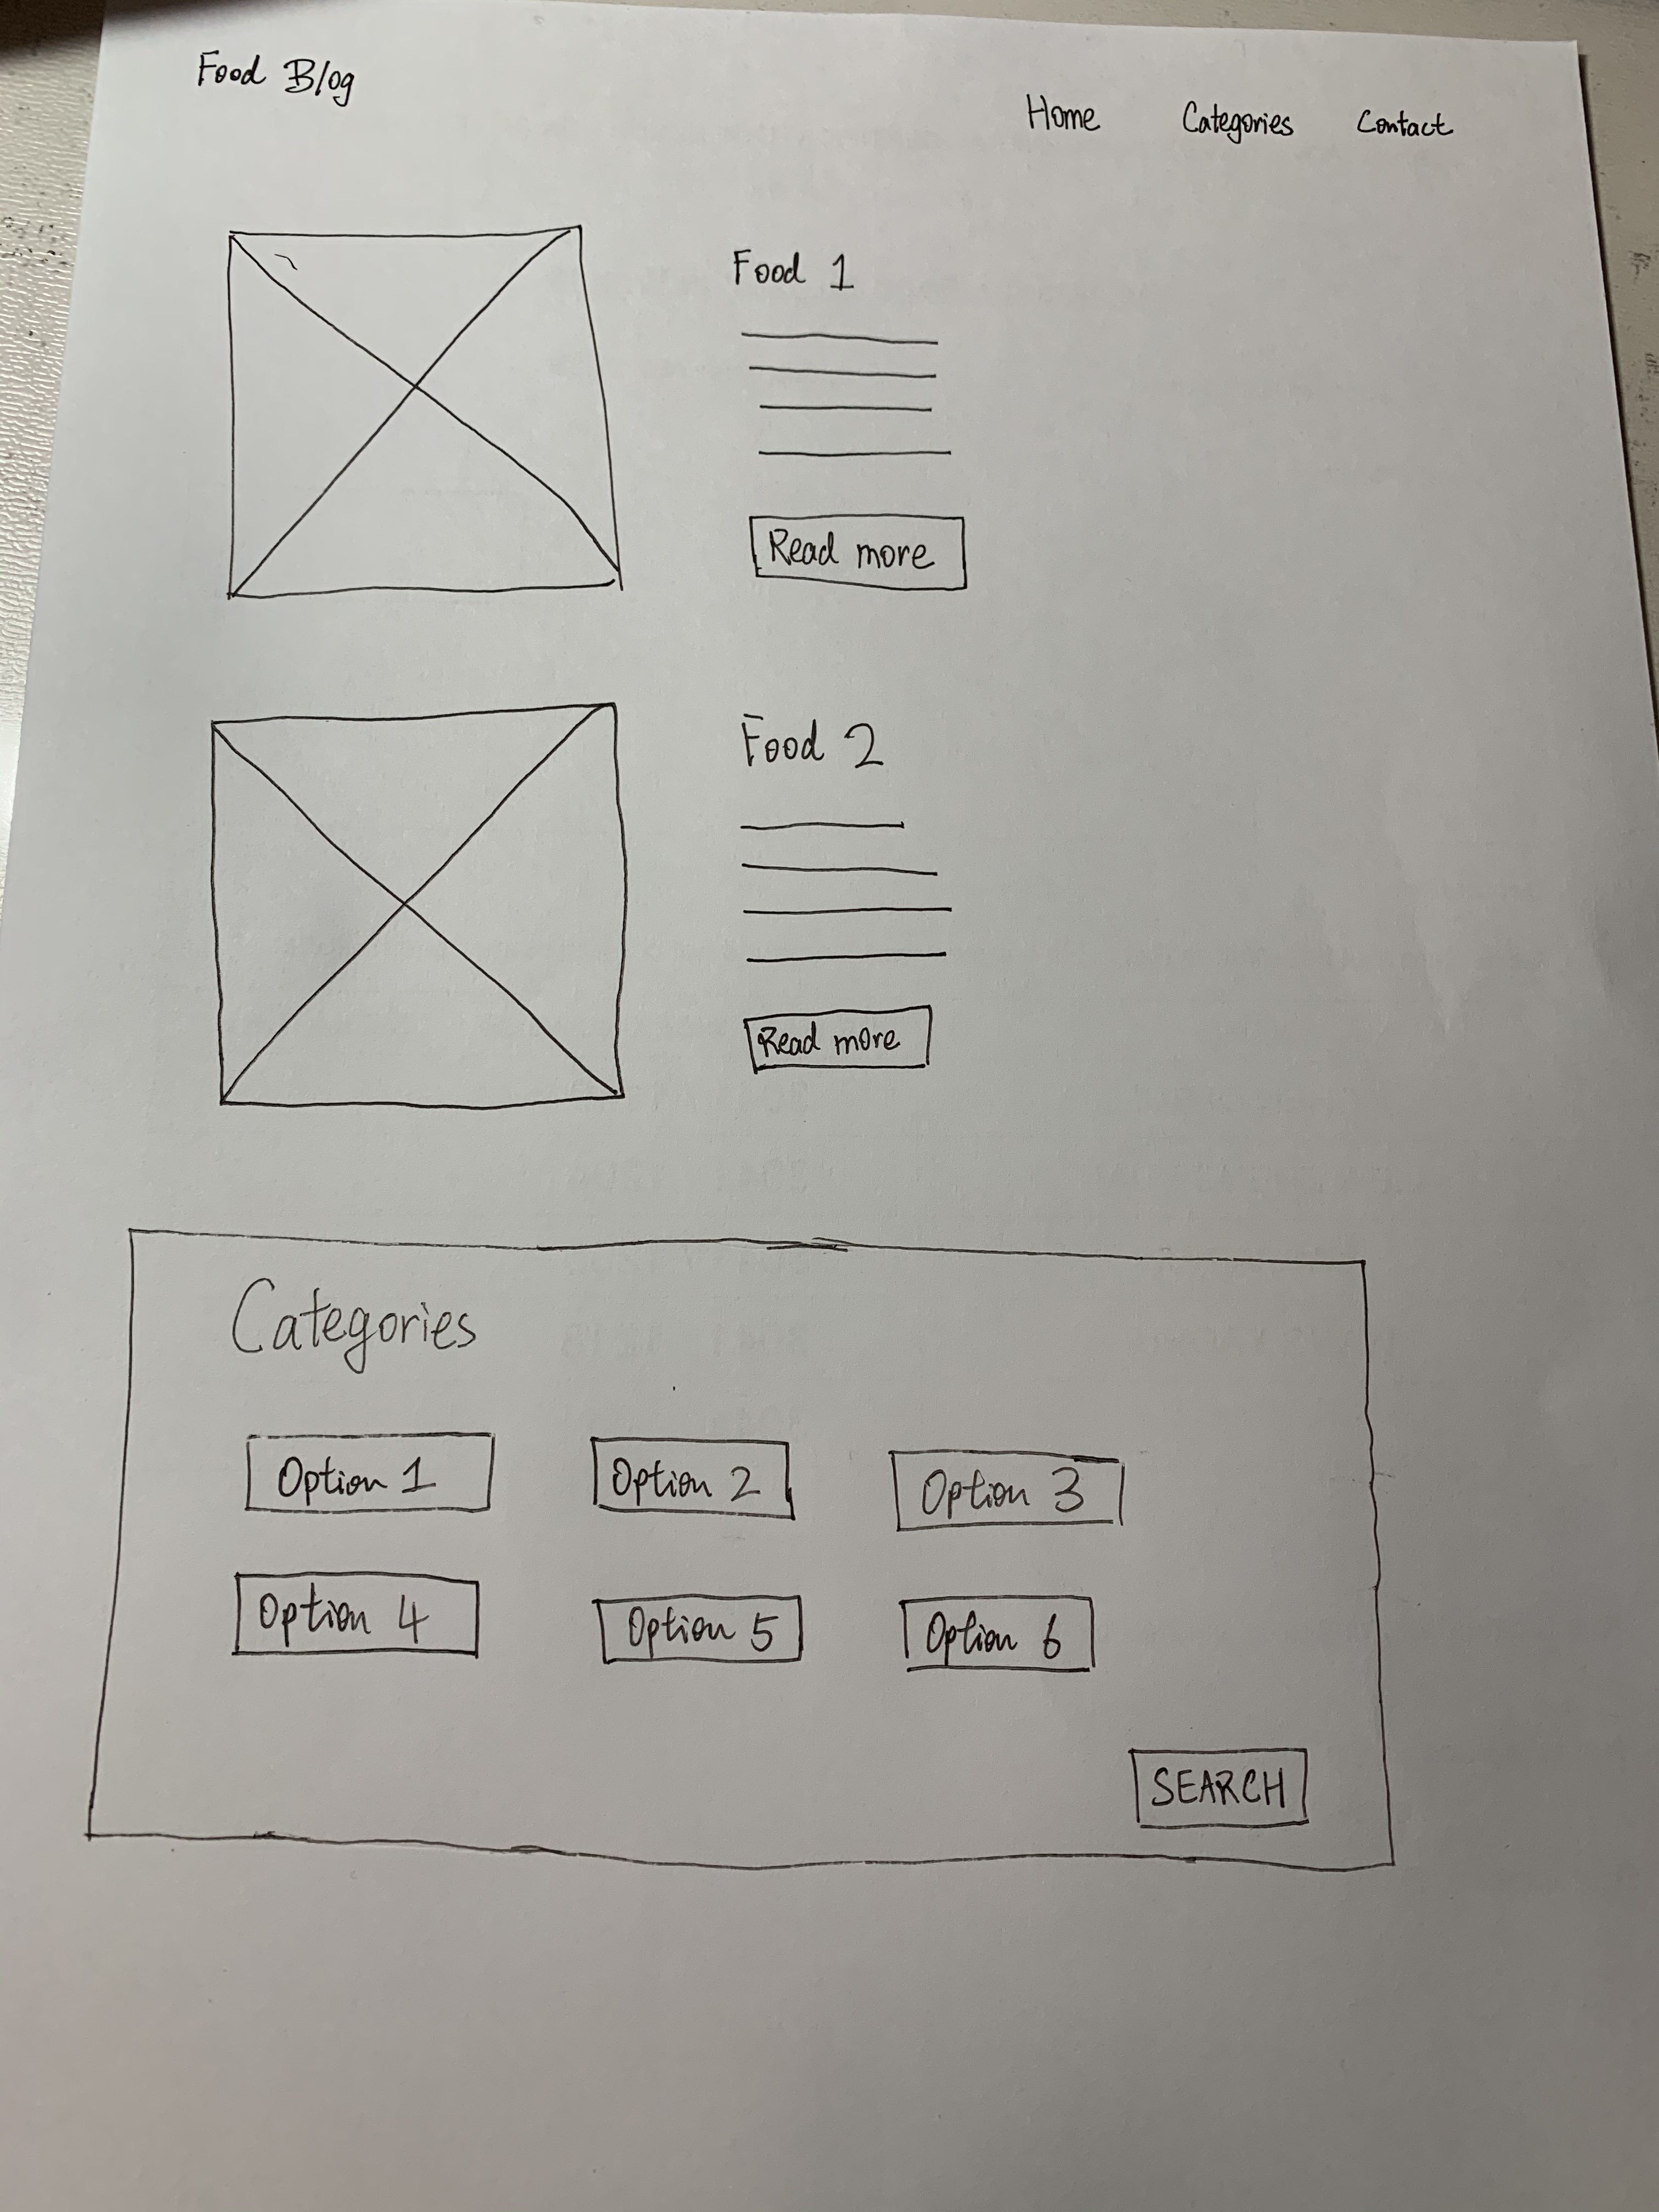 Food Blog
Home Categories Contact
Food 1
Read more
Food 2
Read more
Categories
Option 1 Option 2 Option 3
Option 4 Option 5 Option 6
SEARCH